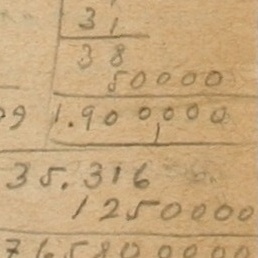 31
38
50000
09 1.900000
1
35.316
1250000
765800000